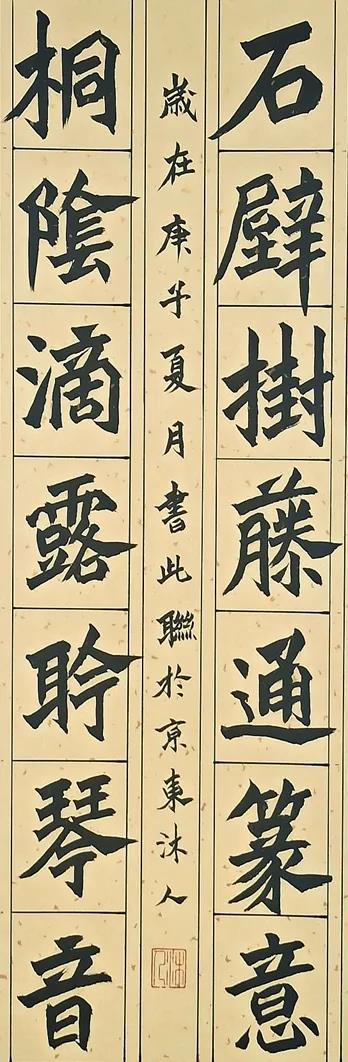 石壁掛藤通篆意
桐陰滴露聆琴音
歲在庚子夏月書此聯於京東沐人